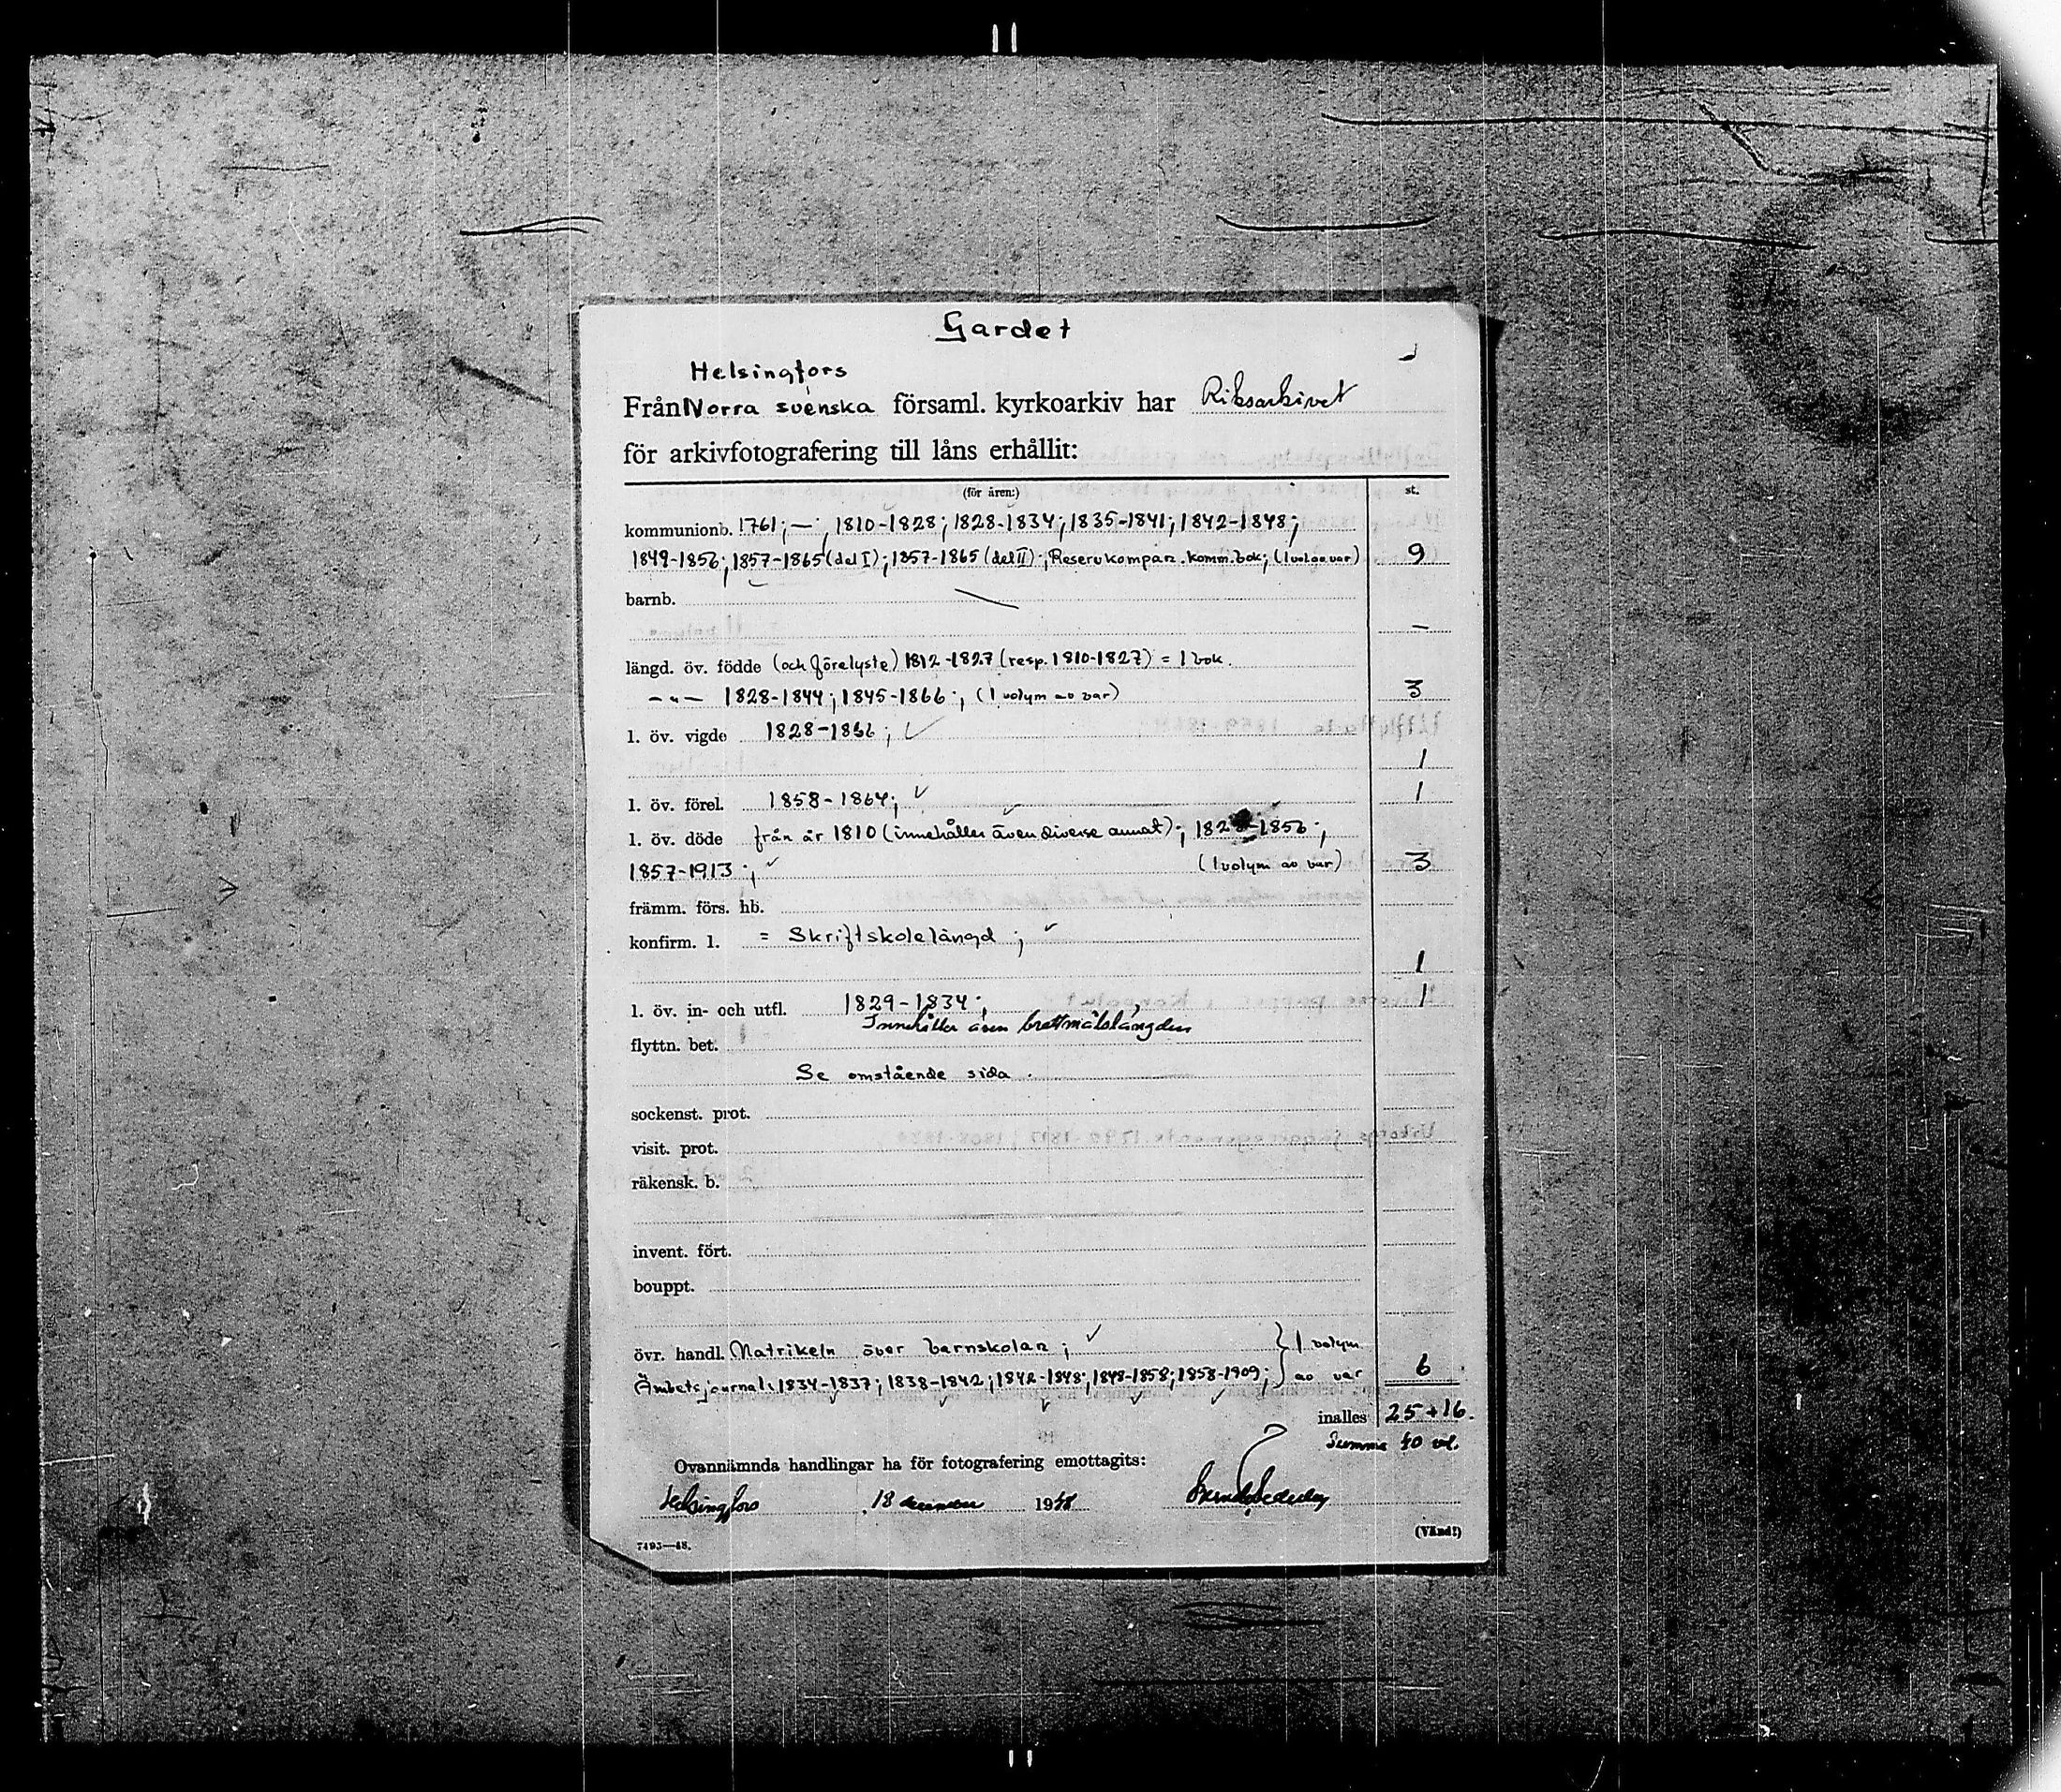 Gardet
Helsingfors
Från Norra svenska församl. kyrkoarkiv har Riksarkivet
för arkivfotografering till låns erhållit:
(för åren:) st.
kommunionb. 1761; — ; 1810-1828; 1828-1834; 1835-1841; 1842-1848;
1849-1856; 1857-1865 (del I); 1857-1865 (del II); Reservkompan. komm.bok; (1 vol av var) 9
barnb.
—
längd. öv. födde (och förelyste) 1812-1827 (resp. 1810-1827) = 1 bok.
— " — 1828-1844; 1845-1866; (1 volym av var) 3
l. öv. vigde 1828-1866;
1
l. öv. förel. 1858-1864; 1
l. öv. döde från år 1810 (innehåller även diverse annat); -1856;
1857-1913; (1 volym av var) 3
främm. förs. hb.
konfirm. l. = Skriftskolelängd;
1
l. öv. in- och utfl. 1829-1834; 1
Innehåller även brottmålslängden
flyttn. bet.
Se omstående sida.
sockenst. prot.
visit. prot.
räkensk. b.
invent. fört.
bouppt.
övr. handl. Matrikeln över barnskolan; } 1 volym
Ämbetsjournal: 1834-1837; 1838-1842; 1842-1848; 1848-1858; 1858-1909; } av var 6
inalles 25+16.
Summa 40 vol.
Ovannämnda handlingar ha för fotografering emottagits:
Helsingfors, 18 december 1948
(Vänd!)
7493—48.